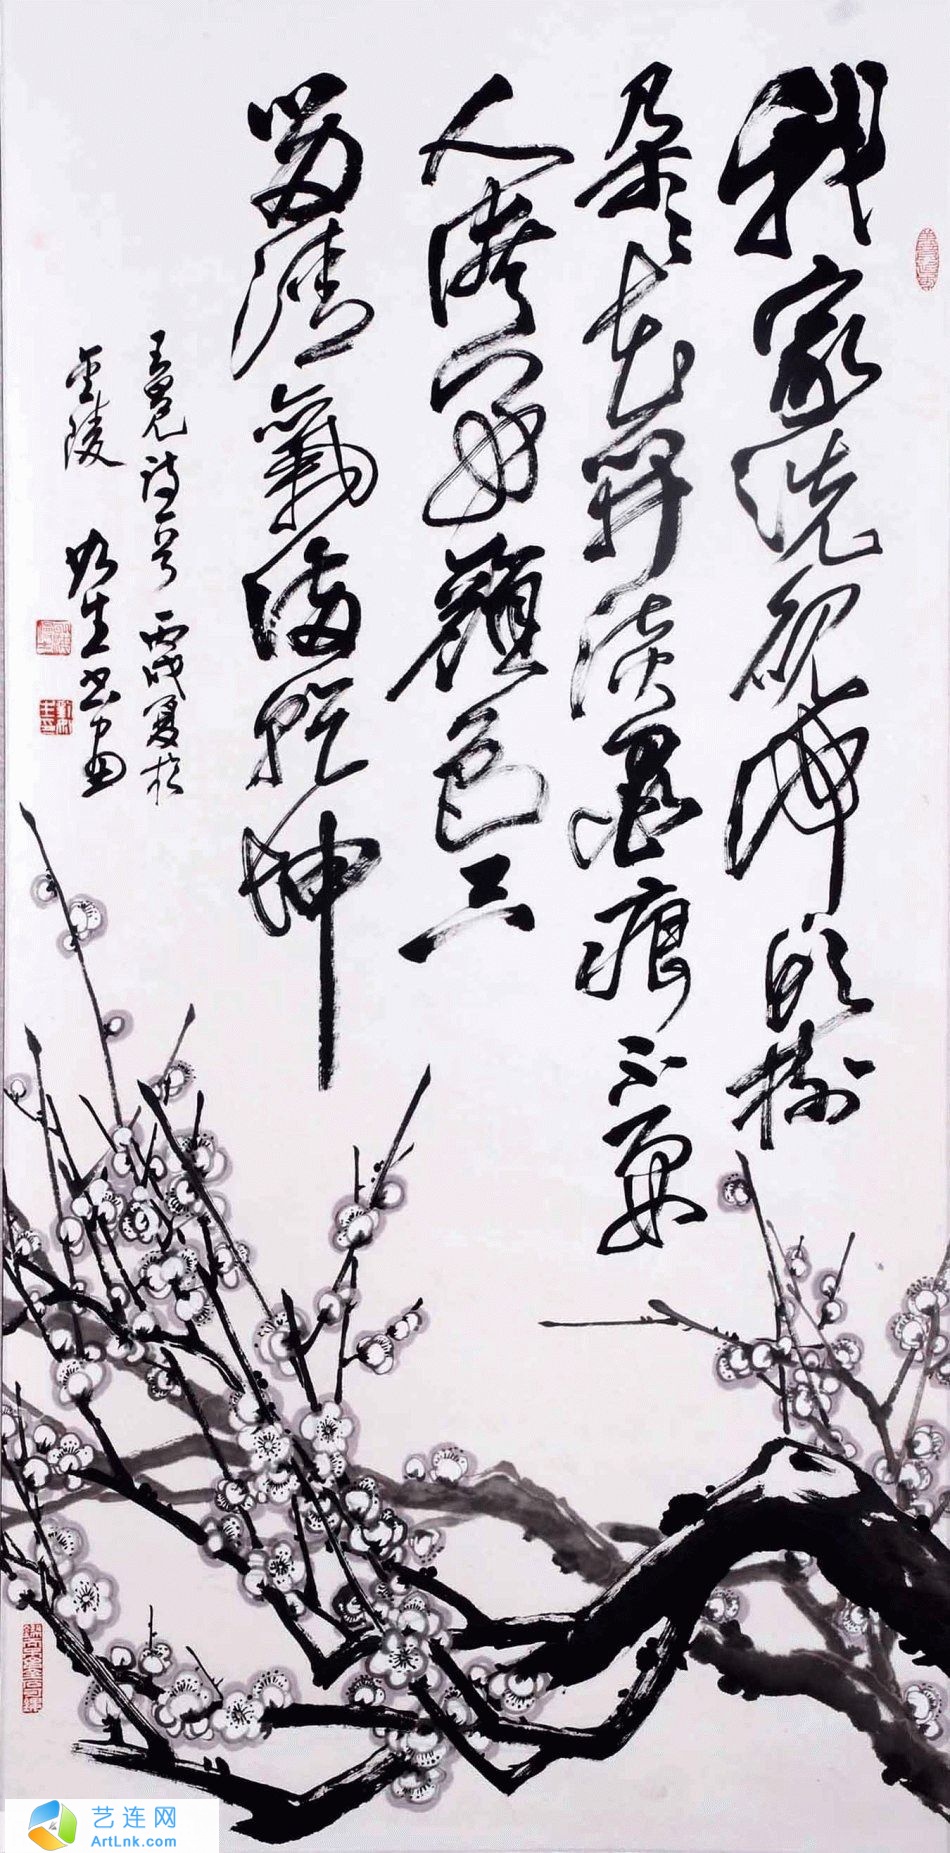 我家洗砚池头树
朵々花開淡墨痕不要
人誇好颜色只
留清氣满乾坤
王冕诗一首 丙戌夏於
金陵 如生书画
艺连网
ArtLnk.com